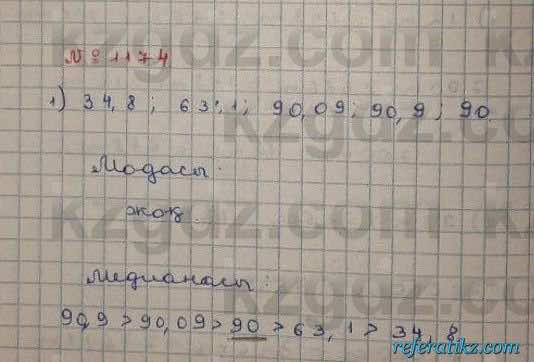 № 1174
1) 34,8; 63,1; 90,09; 90,9; 90
Модасы:
жоқ.
Медианасы:
90,9 > 90,09 > 90 > 63,1 > 34,8
kzgdz.com
referatikz.com